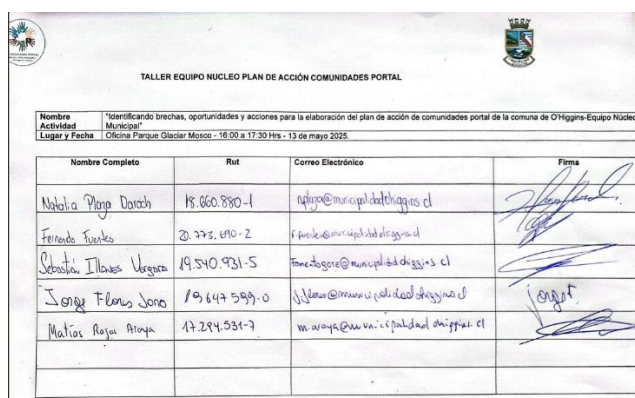 TALLER EQUIPO NUCLEO PLAN DE ACCIÓN COMUNIDADES PORTAL
Nombre Actividad "Identificando brechas, oportunidades y acciones para la elaboración del plan de acción de comunidades portal de la comuna de O'Higgins-Equipo Núcleo Municipal"
Lugar y Fecha Oficina Parque Glaciar Mosco - 16:00 a 17:30 Hrs - 13 de mayo 2025.
Nombre Completo Rut Correo Electrónico Firma
Natalia Plaza Daroch 18.660.880-1 nplaza@municipalidadohiggins.cl
Fernando Fuentes 20.773.690-2 f.fuentes@municipalidadohiggins.cl
Sebastián Illanes Vergara 19.540.931-5 Fomentogore@municipalidadohiggins.cl
Jorge Flores 19647599-0 j.flores@municipalidadohiggins.cl jorge f.
Matías Rojas Araya 17.294.531-7 m.araya@municipalidadohiggins.cl